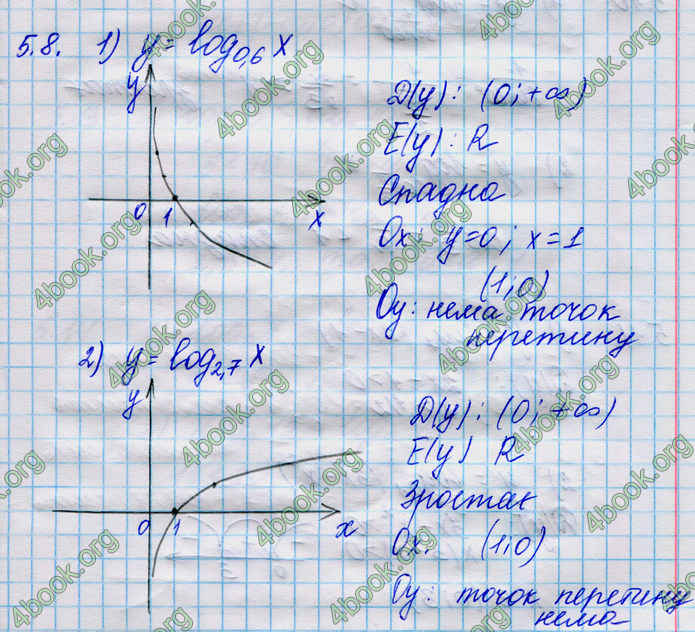 5.8. 1) y = log₀,₆ x
y
0 1 x
D(y): (0; +∞)
E(y): R
Спадна
Ox: y=0; x=1
(1;0)
Oy: нема точок
перетину
2) y = log₂,₇ x
y
0 1 x
D(y): (0; +∞)
E(y) R
Зростає
Ox: (1;0)
Oy: точок перетину
нема
4book.org